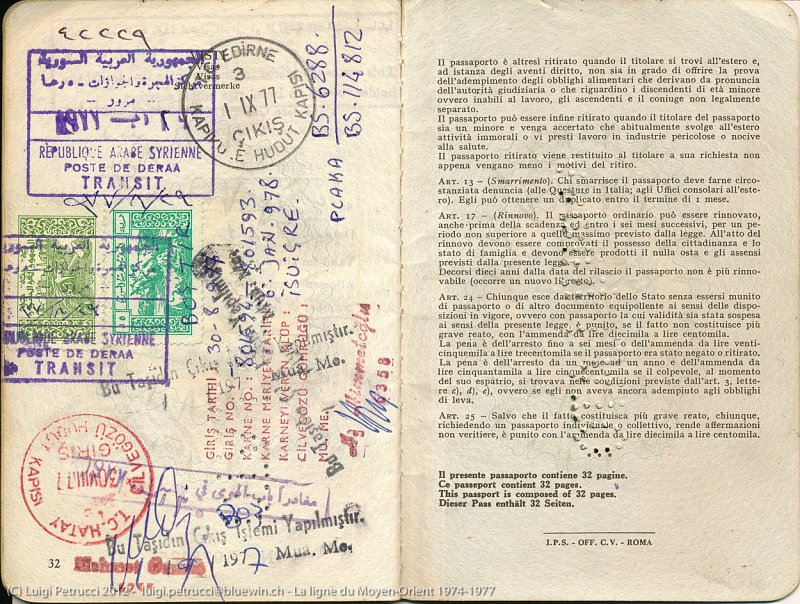 ٤٤٤٤٩
الجمهورية العربية السورية
مركز الهجرة والجوازات - درعا
- مرور -
RÉPUBLIQUE ARABE SYRIENNE
POSTE DE DERAA
TRANSIT
Visas
EDİRNE
3
1 IX 77
ÇIKIŞ
KAPIKULE HUDUT KAPISI
PLAKA
BS. 6288.
BS. 114812.
RÉPUBLIQUE ARABE SYRIENNE
POSTE DE DERAA
TRANSIT
GİRİŞ TARİHİ : 30-8
GİRİŞ NO. :
KARNE NO. :
KARNE MERİYET TARİHİ : 6. JAN. 978.
KARNEYİ VEREN KLÜP : İSVİRE.
CİLVEGÖZÜ GÜMRÜĞÜ :
6358
Bu Taşıdın Çıkış İşlemi Yapılmıştır.
Mua. Me.
T.C. HATAY
CİLVEGÖZÜ HUDUT KAPISI
GİRİŞ
30 VIII 77
Bu Taşıdın Çıkış İşlemi Yapılmıştır.
/ 1977 Mua. Me.
32
Il passaporto è altresì ritirato quando il titolare si trovi all'estero e,
ad istanza degli aventi diritto, non sia in grado di offrire la prova
dell'adempimento degli obblighi alimentari che derivano da pronuncia
dell'autorità giudiziaria o che riguardino i discendenti di età minore
ovvero inabili al lavoro, gli ascendenti e il coniuge non legalmente
separato.
Il passaporto può essere infine ritirato quando il titolare del passaporto
sia un minore e venga accertato che abitualmente svolge all'estero
attività immorali o vi presti lavoro in industrie pericolose o nocive
alla salute.
Il passaporto ritirato viene restituito al titolare a sua richiesta non
appena vengano meno i motivi del ritiro.
ART. 13 - (Smarrimento). Chi smarrisce il passaporto deve farne circo-
stanziata denuncia (alle Questure in Italia; agli Uffici consolari all'este-
ro). Egli può ottenere un duplicato entro il termine di 1 mese.
ART. 17 - (Rinnovo). Il passaporto ordinario può essere rinnovato,
anche prima della scadenza ed entro i sei mesi successivi, per un pe-
riodo non superiore a quello massimo previsto dalla legge. All'atto del
rinnovo devono essere comprovati il possesso della cittadinanza e lo
stato di famiglia e devono essere prodotti il nulla osta e gli assensi
previsti dalla presente legge.
Decorsi dieci anni dalla data del rilascio il passaporto non è più rinno-
vabile (occorre un nuovo libretto).
ART. 24 - Chiunque esce dal territorio dello Stato senza essersi munito
di passaporto o di altro documento equipollente ai sensi delle dispo-
sizioni in vigore, ovvero con passaporto la cui validità sia stata sospesa
ai sensi della presente legge, è punito, se il fatto non costituisce più
grave reato, con l'ammenda da lire diecimila a lire centomila.
La pena è dell'arresto fino a sei mesi o dell'ammenda da lire venti-
cinquemila a lire trecentomila se il passaporto era stato negato o ritirato.
La pena è dell'arresto da un mese ad un anno e dell'ammenda da
lire cinquantamila a lire cinquecentomila se il colpevole, al momento
del suo espatrio, si trovava nelle condizioni previste dall'art. 3, lette-
re c), d), e), ovvero se egli non aveva ancora adempiuto agli obblighi
di leva.
ART. 25 - Salvo che il fatto costituisca più grave reato, chiunque,
richiedendo un passaporto individuale o collettivo, rende affermazioni
non veritiere, è punito con l'ammenda da lire diecimila a lire centomila.
Il presente passaporto contiene 32 pagine.
Ce passeport contient 32 pages.
This passport is composed of 32 pages.
Dieser Pass enthält 32 Seiten.
I.P.S. - OFF. C.V. - ROMA
(C) Luigi Petrucci 2012 - luigi.petrucci@bluewin.ch - La ligne du Moyen-Orient 1974-1977